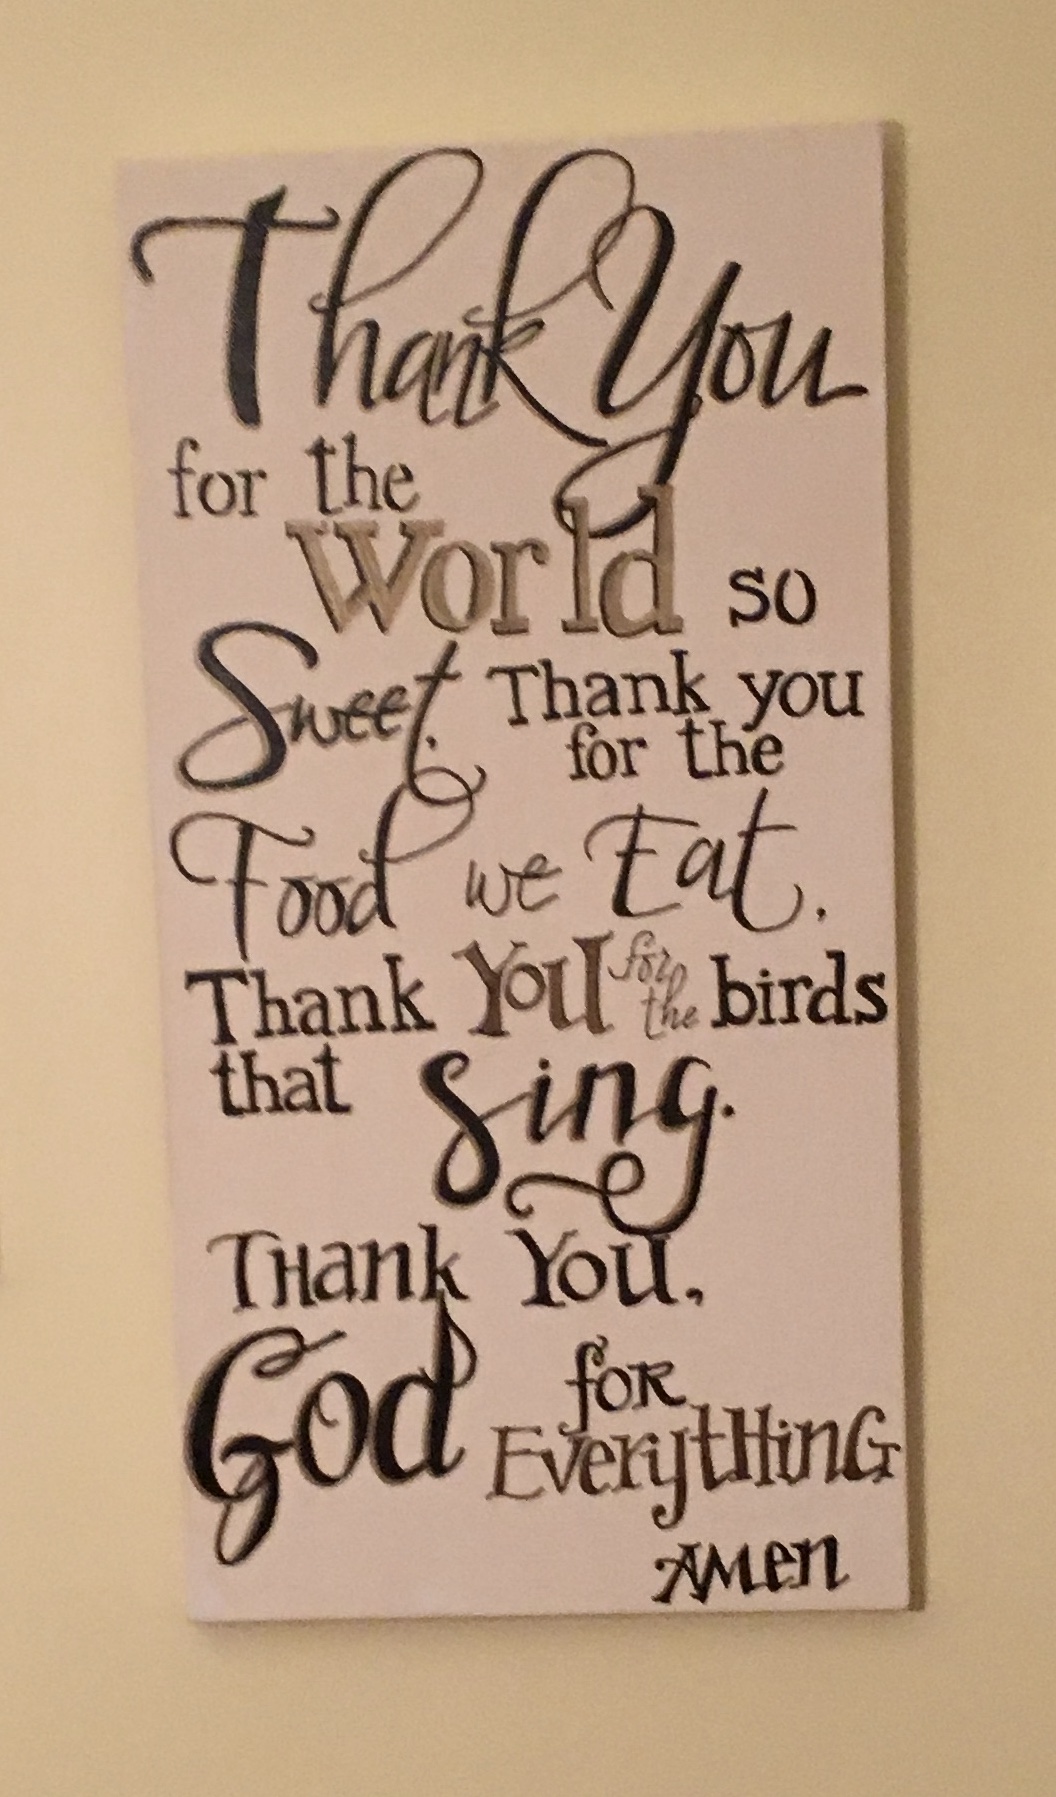 Thank You
for the
World so
Sweet. Thank you
for the
Food we Eat.
Thank You for the birds
that Sing.
THank You,
God for
EverytHinG
AMen